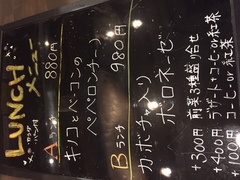 LUNCH
メニュー
Aランチ 880円
キノコとベーコンの
ペペロンチーノ
Bランチ 980円
カボチャ入り
ボロネーゼ
+300円 前菜3種盛り合せ
+400円 デザート+コーヒーor紅茶
+100円 コーヒーor紅茶